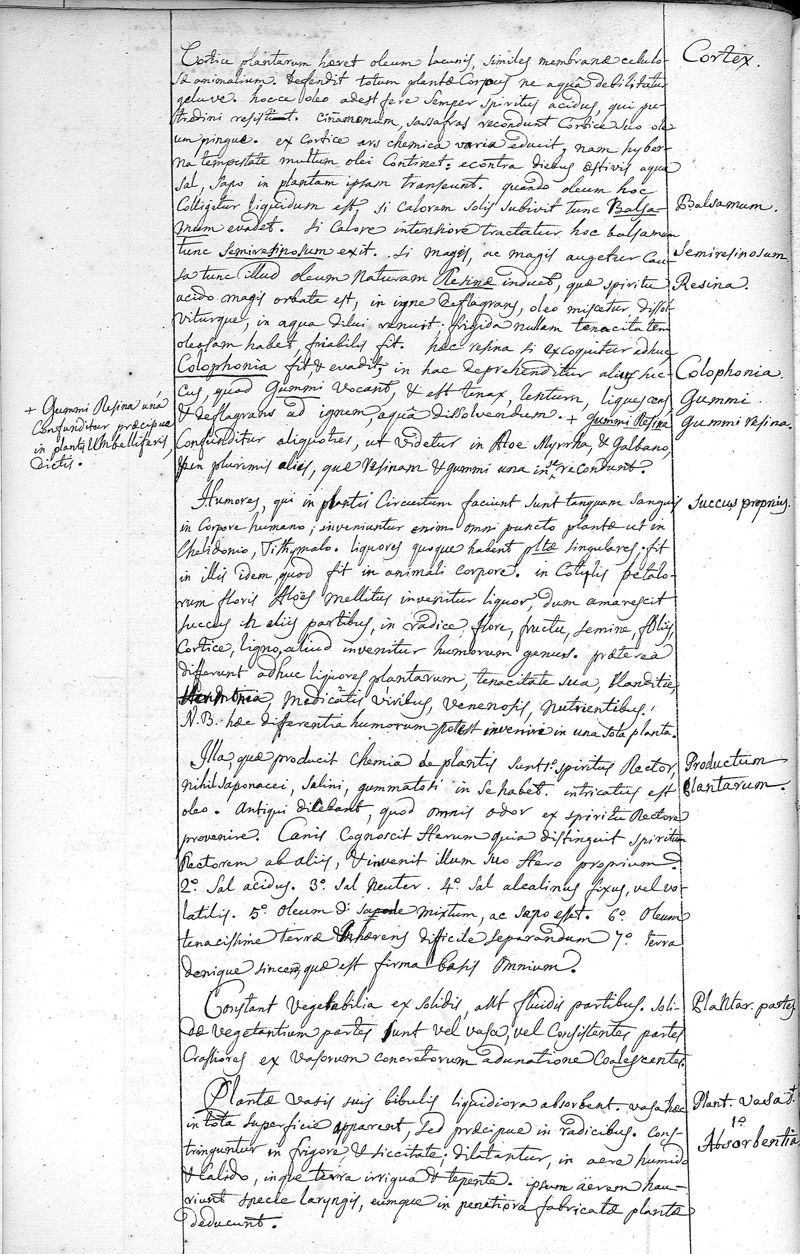 Cortice plantarum hæret oleum lacunis, similes membranæ cellulo-
sæ animalium. defendit totum plantæ Corpus ne aquâ debilitatur
geluve. hocce oleo adest fere semper spiritus acidus, qui pu-
trædini resistit. Cinamomum, sassafras recondunt Cortice suo ole-
um pingue. ex Cortice ars chemica varia educit, nam hyber-
na tempestate multum olei Continet: econtra diebus æstivis aqua
sal, sapo in plantam ipsam transeunt. quando oleum hoc
Colligitur liquidum est, si Calorem solis subivit tunc Balsa-
mum evadet. si Calore intensiore tractatur hoc balsamum
tunc semiresinosum exit. si magis, ac magis augetur Cau-
sa tunc illud oleum naturam Resinæ induet, quæ spiritu
acido magis orbata est, in igne deflagrans, oleo miscetur, dissol-
viturque, in aqua dilui renuit: frigida nulam tenacitatem
oleosam habet friabilis fit. hæc resina si excoquitur adhuc
Colophonia fit & evadit, in hac deprehenditur alius suc-
cus, quod Gummi vocant, & est tenax, lentum, liquescens
& deflagrans ad ignem, aquâ dissolvendum. + Gummi Resina
Confunditur aliquoties, ut videtur in Aloe Myrrha, & Galbano,
in plurimis aliis, quæ resinam & gummi una in se recondunt.
Humores, qui in plantis Circuitum faciunt sunt tanquam sanguis
in Corpore humano; inveniuntur enim omni puncto plantæ ut in
Chelidonio, Tithymalo. liquores quoque habent pltæ singulares. fit
in illis idem quod fit in animali corpore. in Cotylis petalo-
rum floris Aloës mellitus invenitur liquor, dum amarescit
succus in aliis partibus, in radice, flore, fructu, semine, foliis,
Cortice, ligno, aliud invenitur humorum genus. præterea
differunt adhuc liquores plantarum, tenacitate sua, blanditie,
Medicatis viribus, venenosis, nutrientibus.
N.B. hæc differentia humorum potest invenire in una sola planta.
Illa, quæ producit Chemia de plantis sunt 1º spiritus Rector,
nihil saponacei, salini, gummatosi in se habet. intricatus est
oleo. Antiqui dicebant, quod omnis odor ex spiritu Rectore
provenire. Canis Cognoscit Herum quia distinguit spiritum
Rectorem ab aliis, & invenit illum suo Hero proprium.
2º. Sal acidus. 3º. Sal Neuter. 4º. Sal alcalinus fixus, vel vo-
latilis. 5º. Oleum mixtum, ac sapo esset. 6º. Oleum
tenacissime terræ inhærens difficile separandum 7º. terra
denique sincera, quæ est firma basis omnium.
Constant Vegetabilia ex solidis, ast fluidis partibus. soli-
dæ vegetantium partes sunt vel vasa, vel Consistentes partes
Crassiores ex vasorum concretorum adunatione Coalescentes.
Plantæ vasis suis bibulis liquidiora absorbent. vasa hæc
in tota superficie apparent, sed præcipue in radicibus. Cons-
tringuntur in frigore & siccitate; dilatantur, in aere humido
& Calido, inque terra irrigua & tepente. ipsum äerem hau-
riunt specie laryngis, eumque in penitiora fabricatæ plantæ
deducunt.
+ Gummi Resina unà
Confunditur præcipue
in plantis Umbelliferis
dictis.
Cortex.
Balsamum.
Semiresinosum
Resina.
Colophonia.
Gummi.
Gummi resina.
succus proprius.
Productum
plantarum.
Plantar. partes
Plant. vasa
1º
Absorbentia